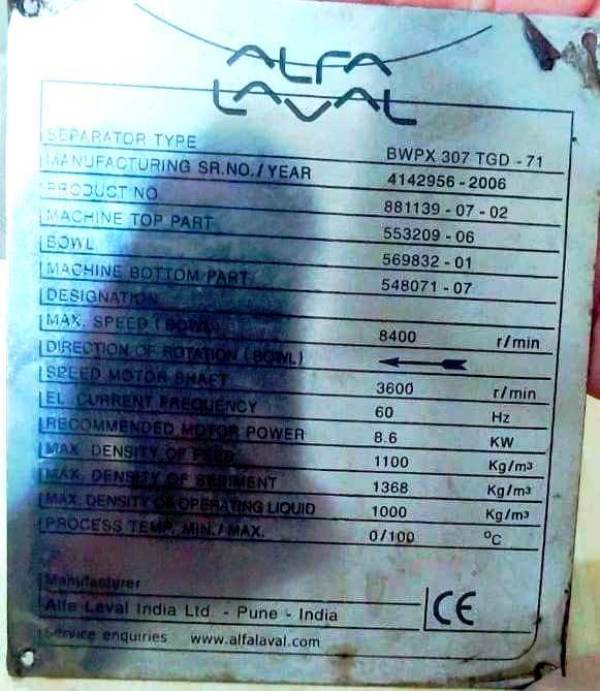 ALFA
LAVAL
SEPARATOR TYPE BWPX 307 TGD - 71
MANUFACTURING SR.NO./YEAR 4142956 - 2006
PRODUCT NO 881139 - 07 - 02
MACHINE TOP PART 553209 - 06
BOWL 569832 - 01
MACHINE BOTTOM PART 548071 - 07
DESIGNATION
MAX. SPEED (BOWL) 8400 r/min
DIRECTION OF ROTATION (BOWL)
SPEED MOTOR SHAFT 3600 r/min
EL. CURRENT FREQUENCY 60 Hz
RECOMMENDED MOTOR POWER 8.6 KW
MAX. DENSITY OF FEED 1100 Kg/m³
MAX. DENSITY OF SEDIMENT 1368 Kg/m³
MAX. DENSITY OF OPERATING LIQUID 1000 Kg/m³
PROCESS TEMP. MIN./MAX. 0/100 °C
Manufacturer
Alfa Laval India Ltd. - Pune - India CE
Service enquiries www.alfalaval.com